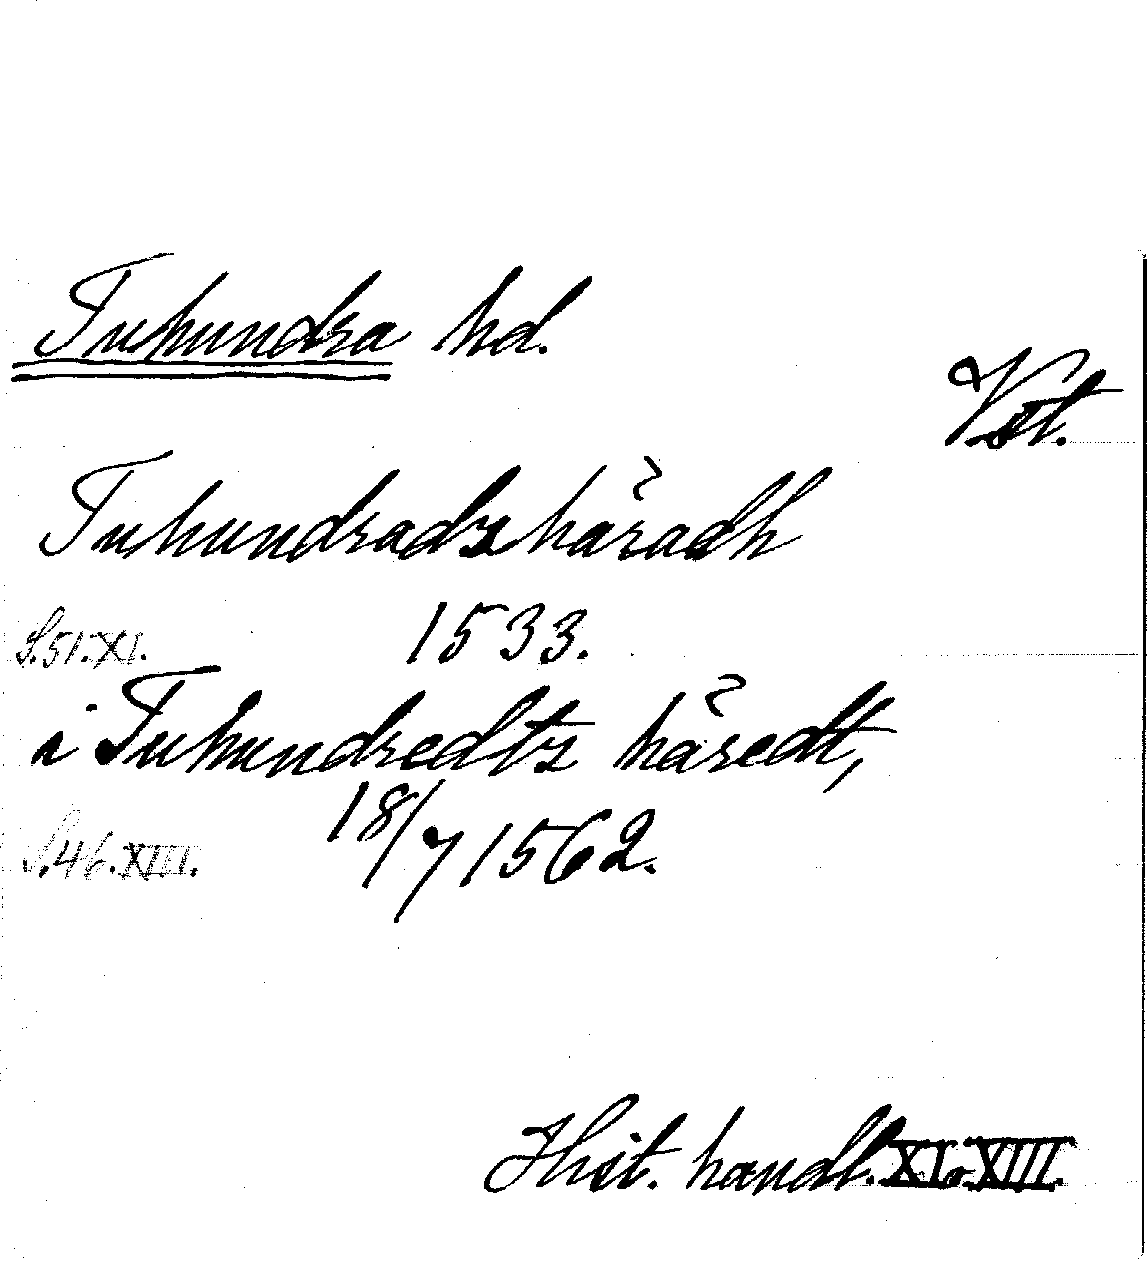 Tuhundra hd.
Vstl.
Tuhundradzhäradh
S.51.XI. 1533.
i Tuhundredtz häredt,
S.46.XIII. 18/7 1562.
Hist. handl. XI o. XIII.